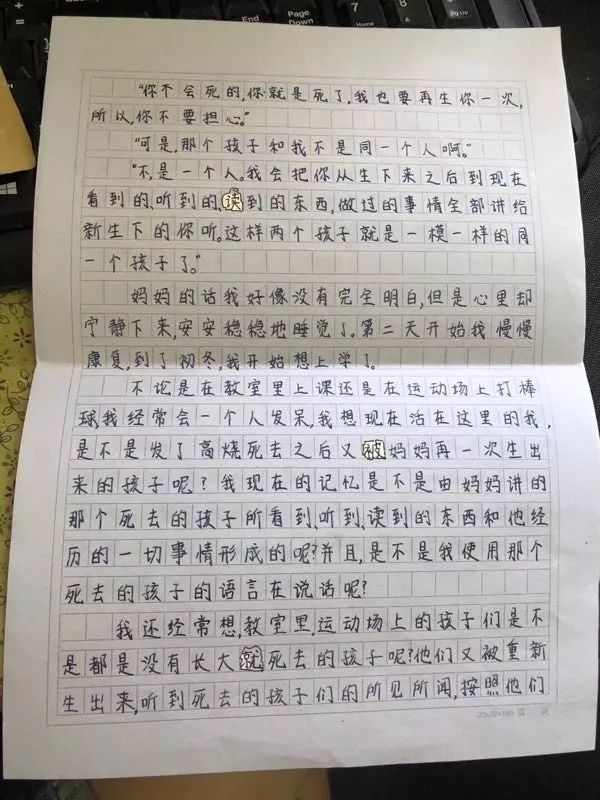 End
Page Down
Pg Up
"你不会死的,你就是死了,我也要再生你一次,
所以,你不要担心。"
"可是,那个孩子和我不是同一个人啊。"
"不,是一个人。我会把你从生下来之后到现在
看到的、听到的、读到的东西,做过的事情全部讲给
新生下的你听。这样两个孩子就是一模一样的同
一个孩子了。"
妈妈的话我好像没有完全明白,但是心里却
宁静下来,安安稳稳地睡觉了。第二天开始我慢慢
康复,到了初冬,我开始想上学了。
不论是在教室里上课还是在运动场上打棒
球我经常会一个人发呆,我想现在活在这里的我,
是不是发了高烧死去之后又被妈妈再一次生出
来的孩子呢?我现在的记忆是不是由妈妈讲的
那个死去的孩子所看到、听到、读到的东西和他经
历的一切事情形成的呢?并且,是不是我使用那个
死去的孩子的语言在说话呢?
我还经常想,教室里,运动场上的孩子们是不
是都是没有长大就死去的孩子呢?他们又被重新
生出来,听到死去的孩子们的所见所闻,按照他们